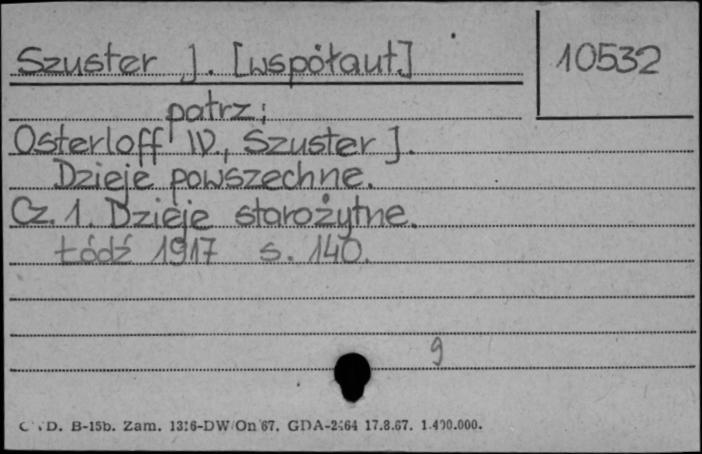 Szuster J. [współaut]
10532
patrz:
Osterloff W., Szuster J.
Dzieje powszechne.
Cz. 1. Dzieje starożytne.
Łódź 1917 s. 140.
9
B-15b. Zam. 1316-DW/On/67. GDA-2464 17.8.67. 1.400.000.